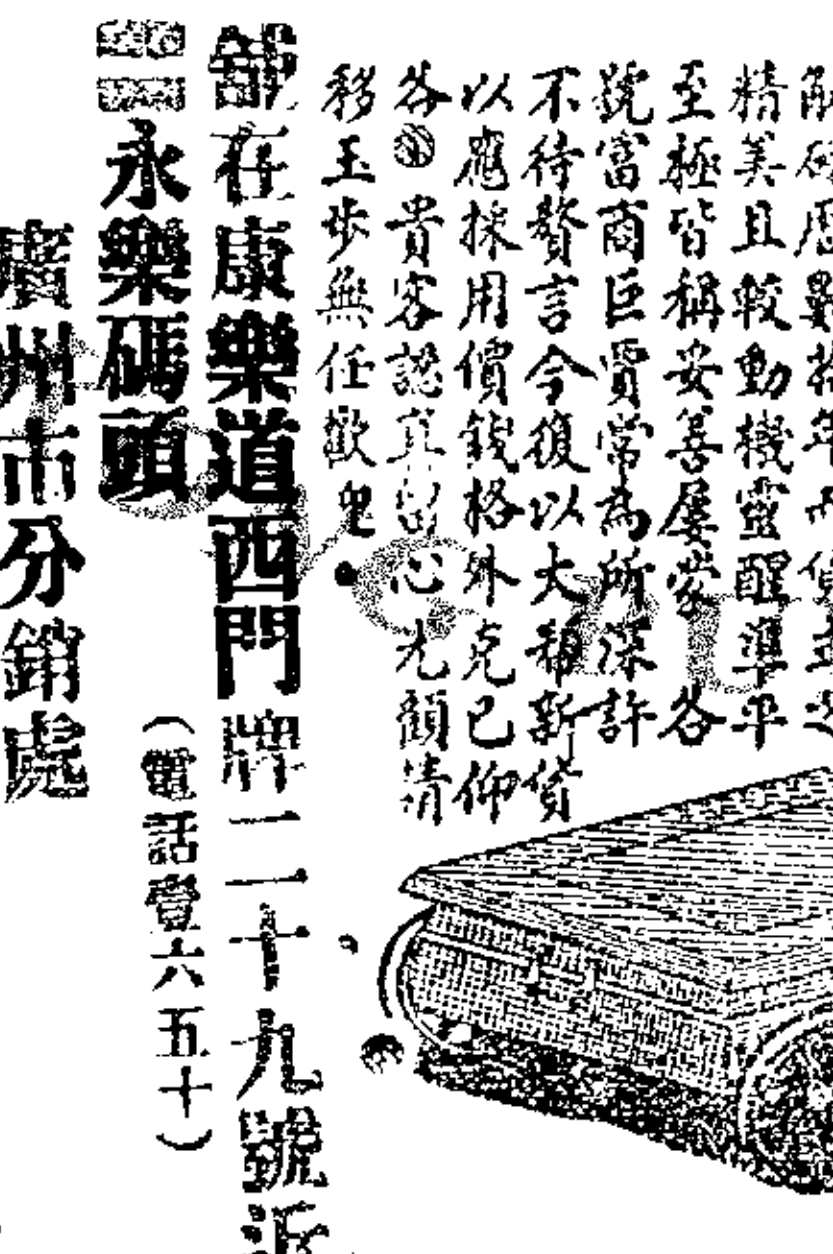 曆數拾年而貨
精美且較動機靈醒準平
至極皆稱妥善屢蒙 各
號富商巨賈常為所深許
不待贅言今復以大幫新貨
以應採用價錢格外克已仰
各 貴客認真留心尤額請
移玉步無任歡迎
舖在康樂道西門牌二十九號近
永樂碼頭
(電話壹六五十)
廣州市分銷處